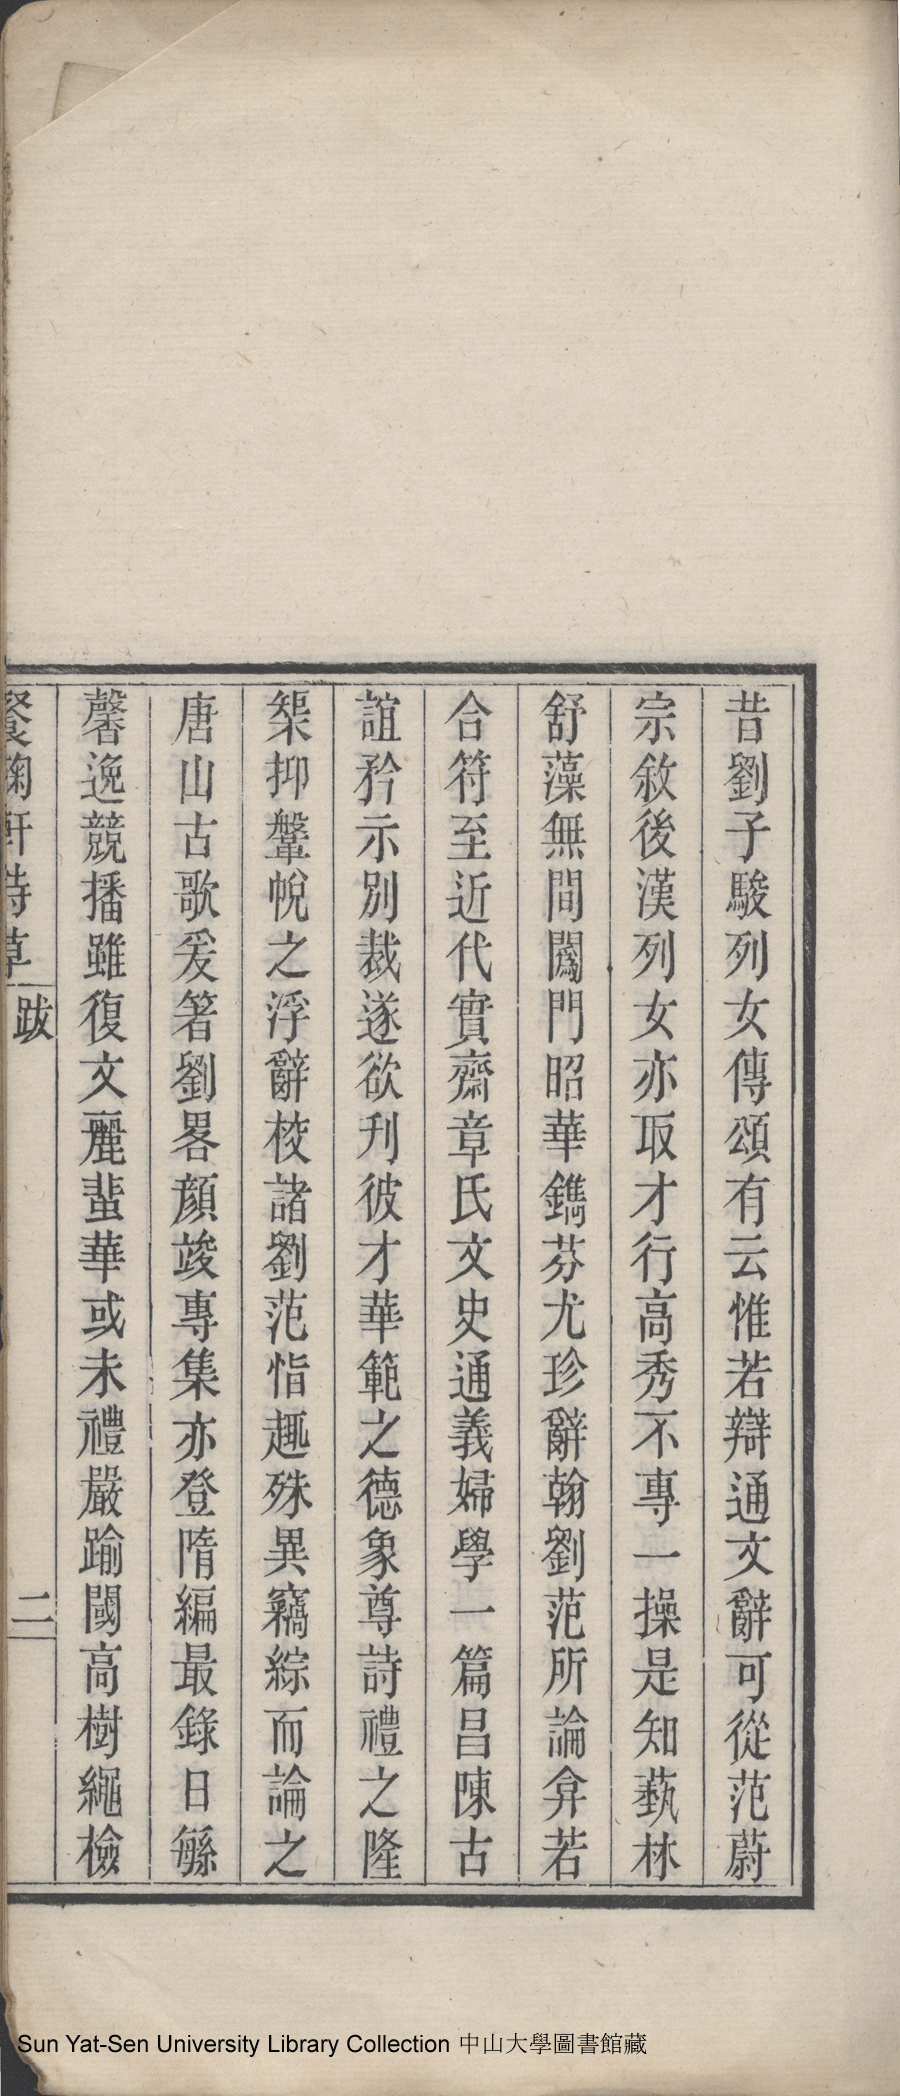 昔劉子駿列女傳頌有云惟若辯通文辭可從范蔚
宗敘後漢列女亦取才行高秀不專一操是知蓺林
舒藻無間闔門昭華鐫芬尤珍辭翰劉范所論弇若
合符至近代實齋章氏文史通義婦學一篇昌陳古
誼矜示別裁遂欲刋彼才華範之德象尊詩禮之隆
榘抑鞶帨之浮辭校諸劉范恉趣殊異竊綜而論之
唐山古歌爰箸劉畧顏竣專集亦登隋編最錄日緐
馨逸競播雖復文麗蜚華或未禮嚴踰閾高樹繩檢
餐菊軒詩草
跋
二
Sun Yat-Sen University Library Collection 中山大學圖書館藏